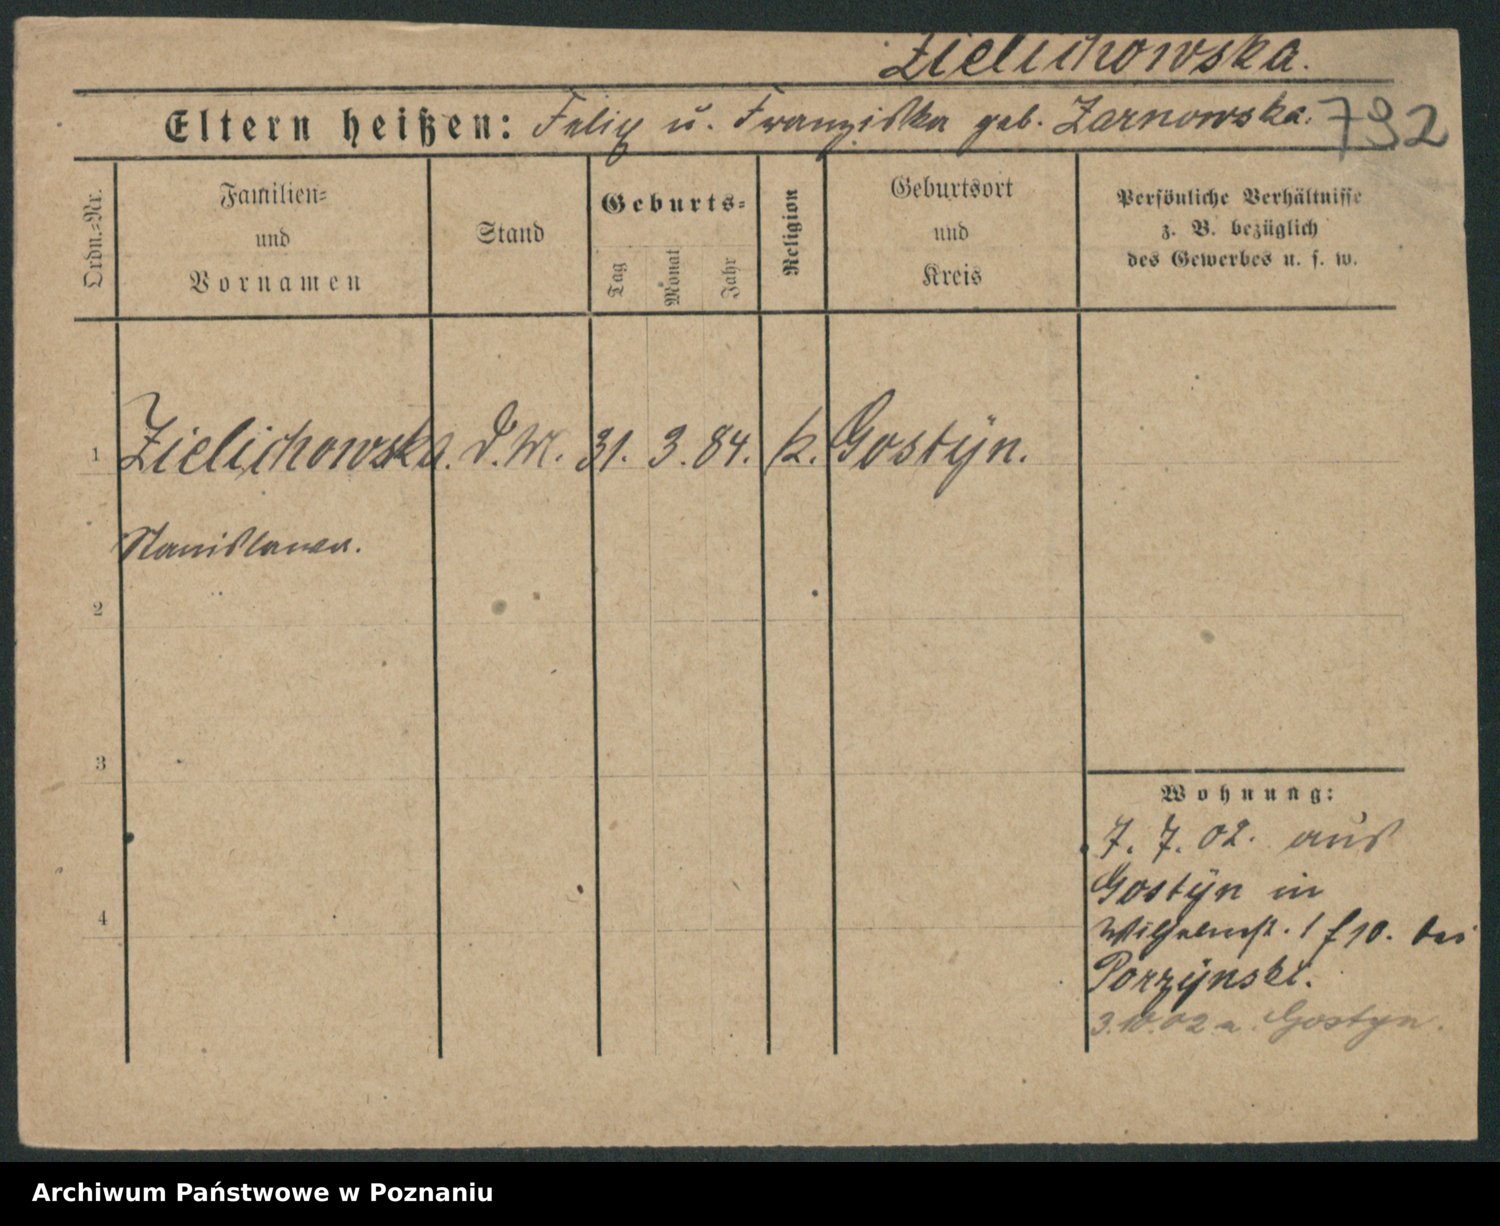 Zielichowska.
Eltern heißen: Felix u. Franziska geb. Zarnowska.
792
Ordn.=Nr.
Familien=
und
Vornamen
Stand
Geburts=
Tag
Monat
Jahr
Religion
Geburtsort
und
Kreis
Persönliche Verhältnisse
z. B. bezüglich
des Gewerbes u. s. w.
1 Zielichowska. D. M. 31. 3. 84. k. Gostÿn.
Stanislawa.
2
3
4
Wohnung:
7. 7. 02. aus
Gostÿn in
Wilhelmst. 10. bei
Porzÿnski.
3.10.02 n. Gostyn.
Archiwum Państwowe w Poznaniu